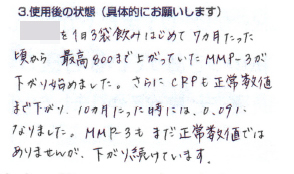 3.使用後の状態（具体的にお願いします）
を1日3袋飲みはじめて7ヵ月たった
頃から 最高800まで上がっていたMMP-3が
下がり始めました。さらにCRPも正常数値
まで下がり、10ヵ月たった時には、0.091に
なりました。MMP-3もまだ正常数値では
ありませんが、下がり続けています。